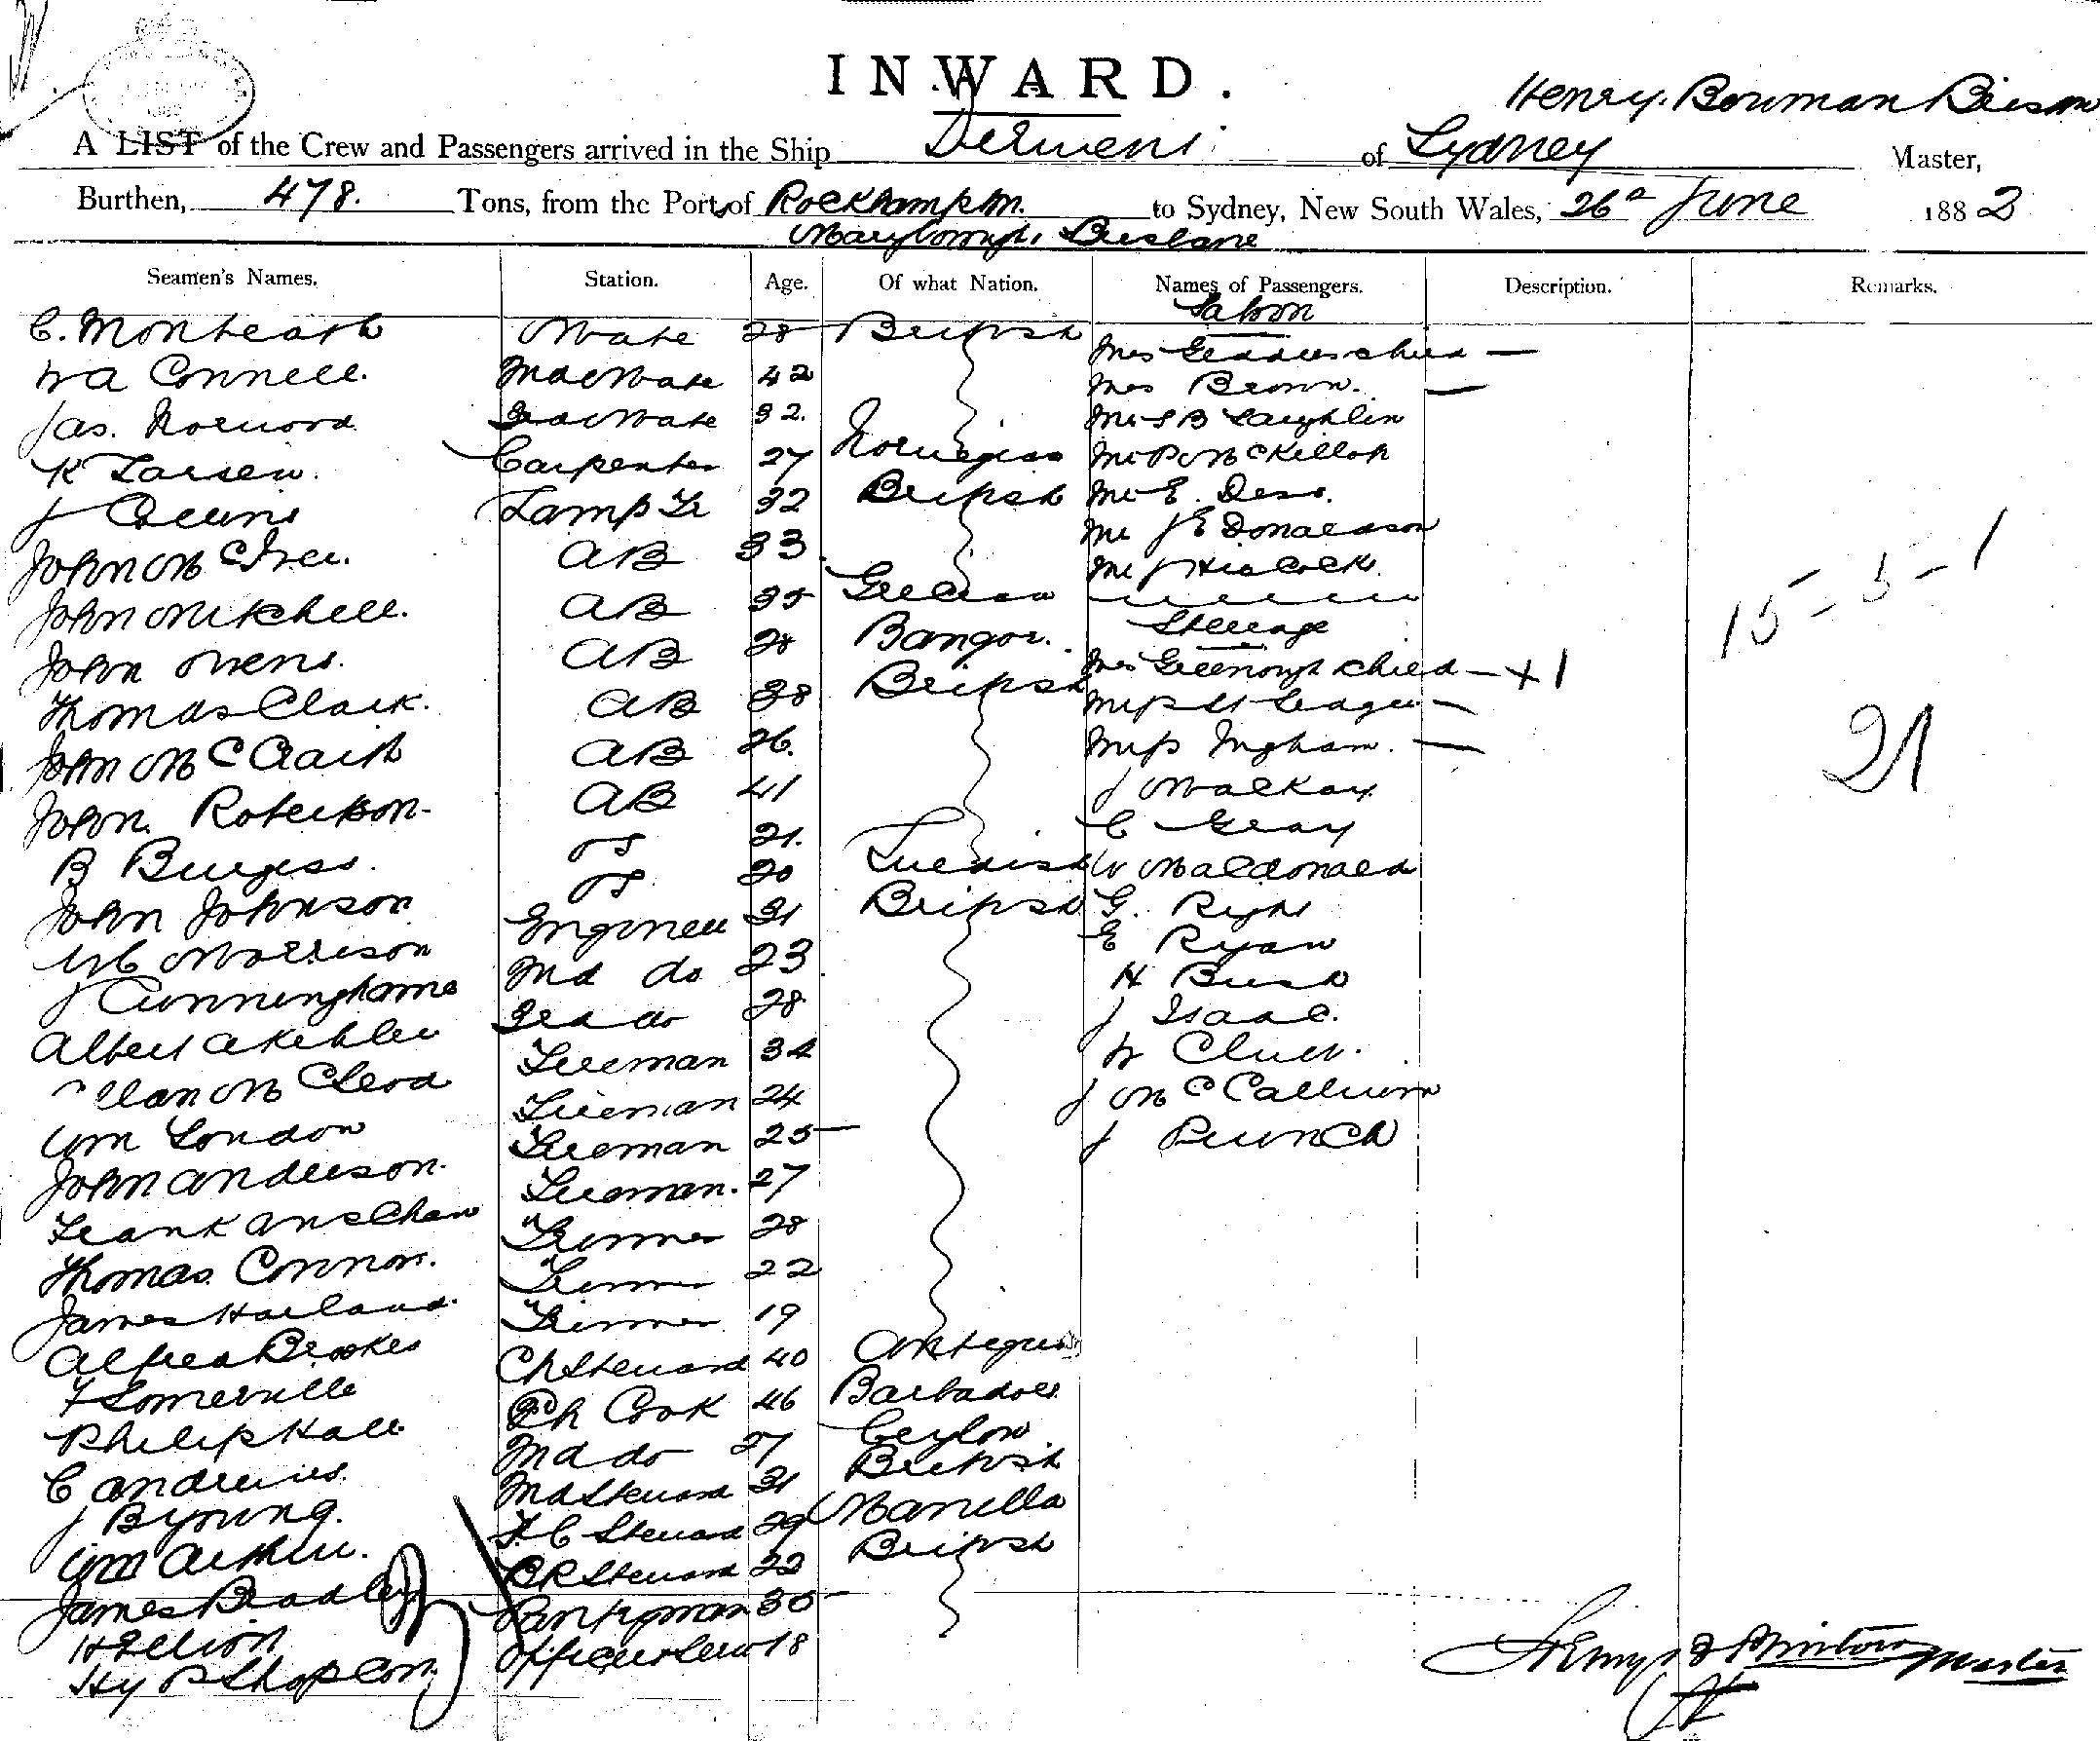 INWARD.
Henry Bowman
A LIST of the Crew and Passengers arrived in the Ship Derwent of Sydney Master,
Burthen, 478. Tons, from the Port of Rockhampton. to Sydney, New South Wales, 26th June 1882
Maryborough, Brisbane
Seamen's Names. Station. Age. Of what Nation. Names of Passengers. Description. Remarks.
Saloon
C. Monteath Mate 28 British Mrs Geddes child —
Wa Connell. 2nd Mate 42 Mrs Brown. —
Jas. Norwood 3rd Mate 32. Mr S B Laughlin
K Larsen. Carpenter 27 Norwegian Mr P McKillop
J Collins Lamp Tr 32 British Mr E. Dess.
John McGree. AB 33 Mr J E Donaldson
John Mitchell. AB 35 Grecian Mr J Hiscock.
John Owens. AB 28 Bangor. Steerage
Thomas Clark. AB 38 British Mrs Greenough child — + 1
15 - 5 - 1
John McCraith AB 26. Miss St Leager —
John Robertson. AB 41 Miss Ingham. —
21
B Burgess. OS 21. J Mackay
John Johnson OS 20 Swedish C Gray
Morrison Engineer 31 British W MacDonald
J Cunninghame 2nd do 23 G. Right
Albert Akehler 3rd do 28 E Ryan
Allan McLeod Fireman 34 H Bush
Wm London Fireman 24 J Isaac.
John Anderson. Fireman 25 W Cluer.
Frank Anschaw Fireman. 27 J McCallum
Thomas Connor. Trimmer 28 J Punch
James Harland. Trimmer 22
Alfred Brookes Trimmer 19
F Somerville Ch Steward 40 Antegua
Philip Hall Ch Cook 46 Barbadoes
C Andrews. 2nd do 27 Ceylon
J B Young. 2nd Steward 31 British
Wm Arthur. F. C Steward 29 Manilla
James Bradley BR Steward 22 British
H Ellison Pantryman 30
Hy P Shopcon Officers Serv 18
Master